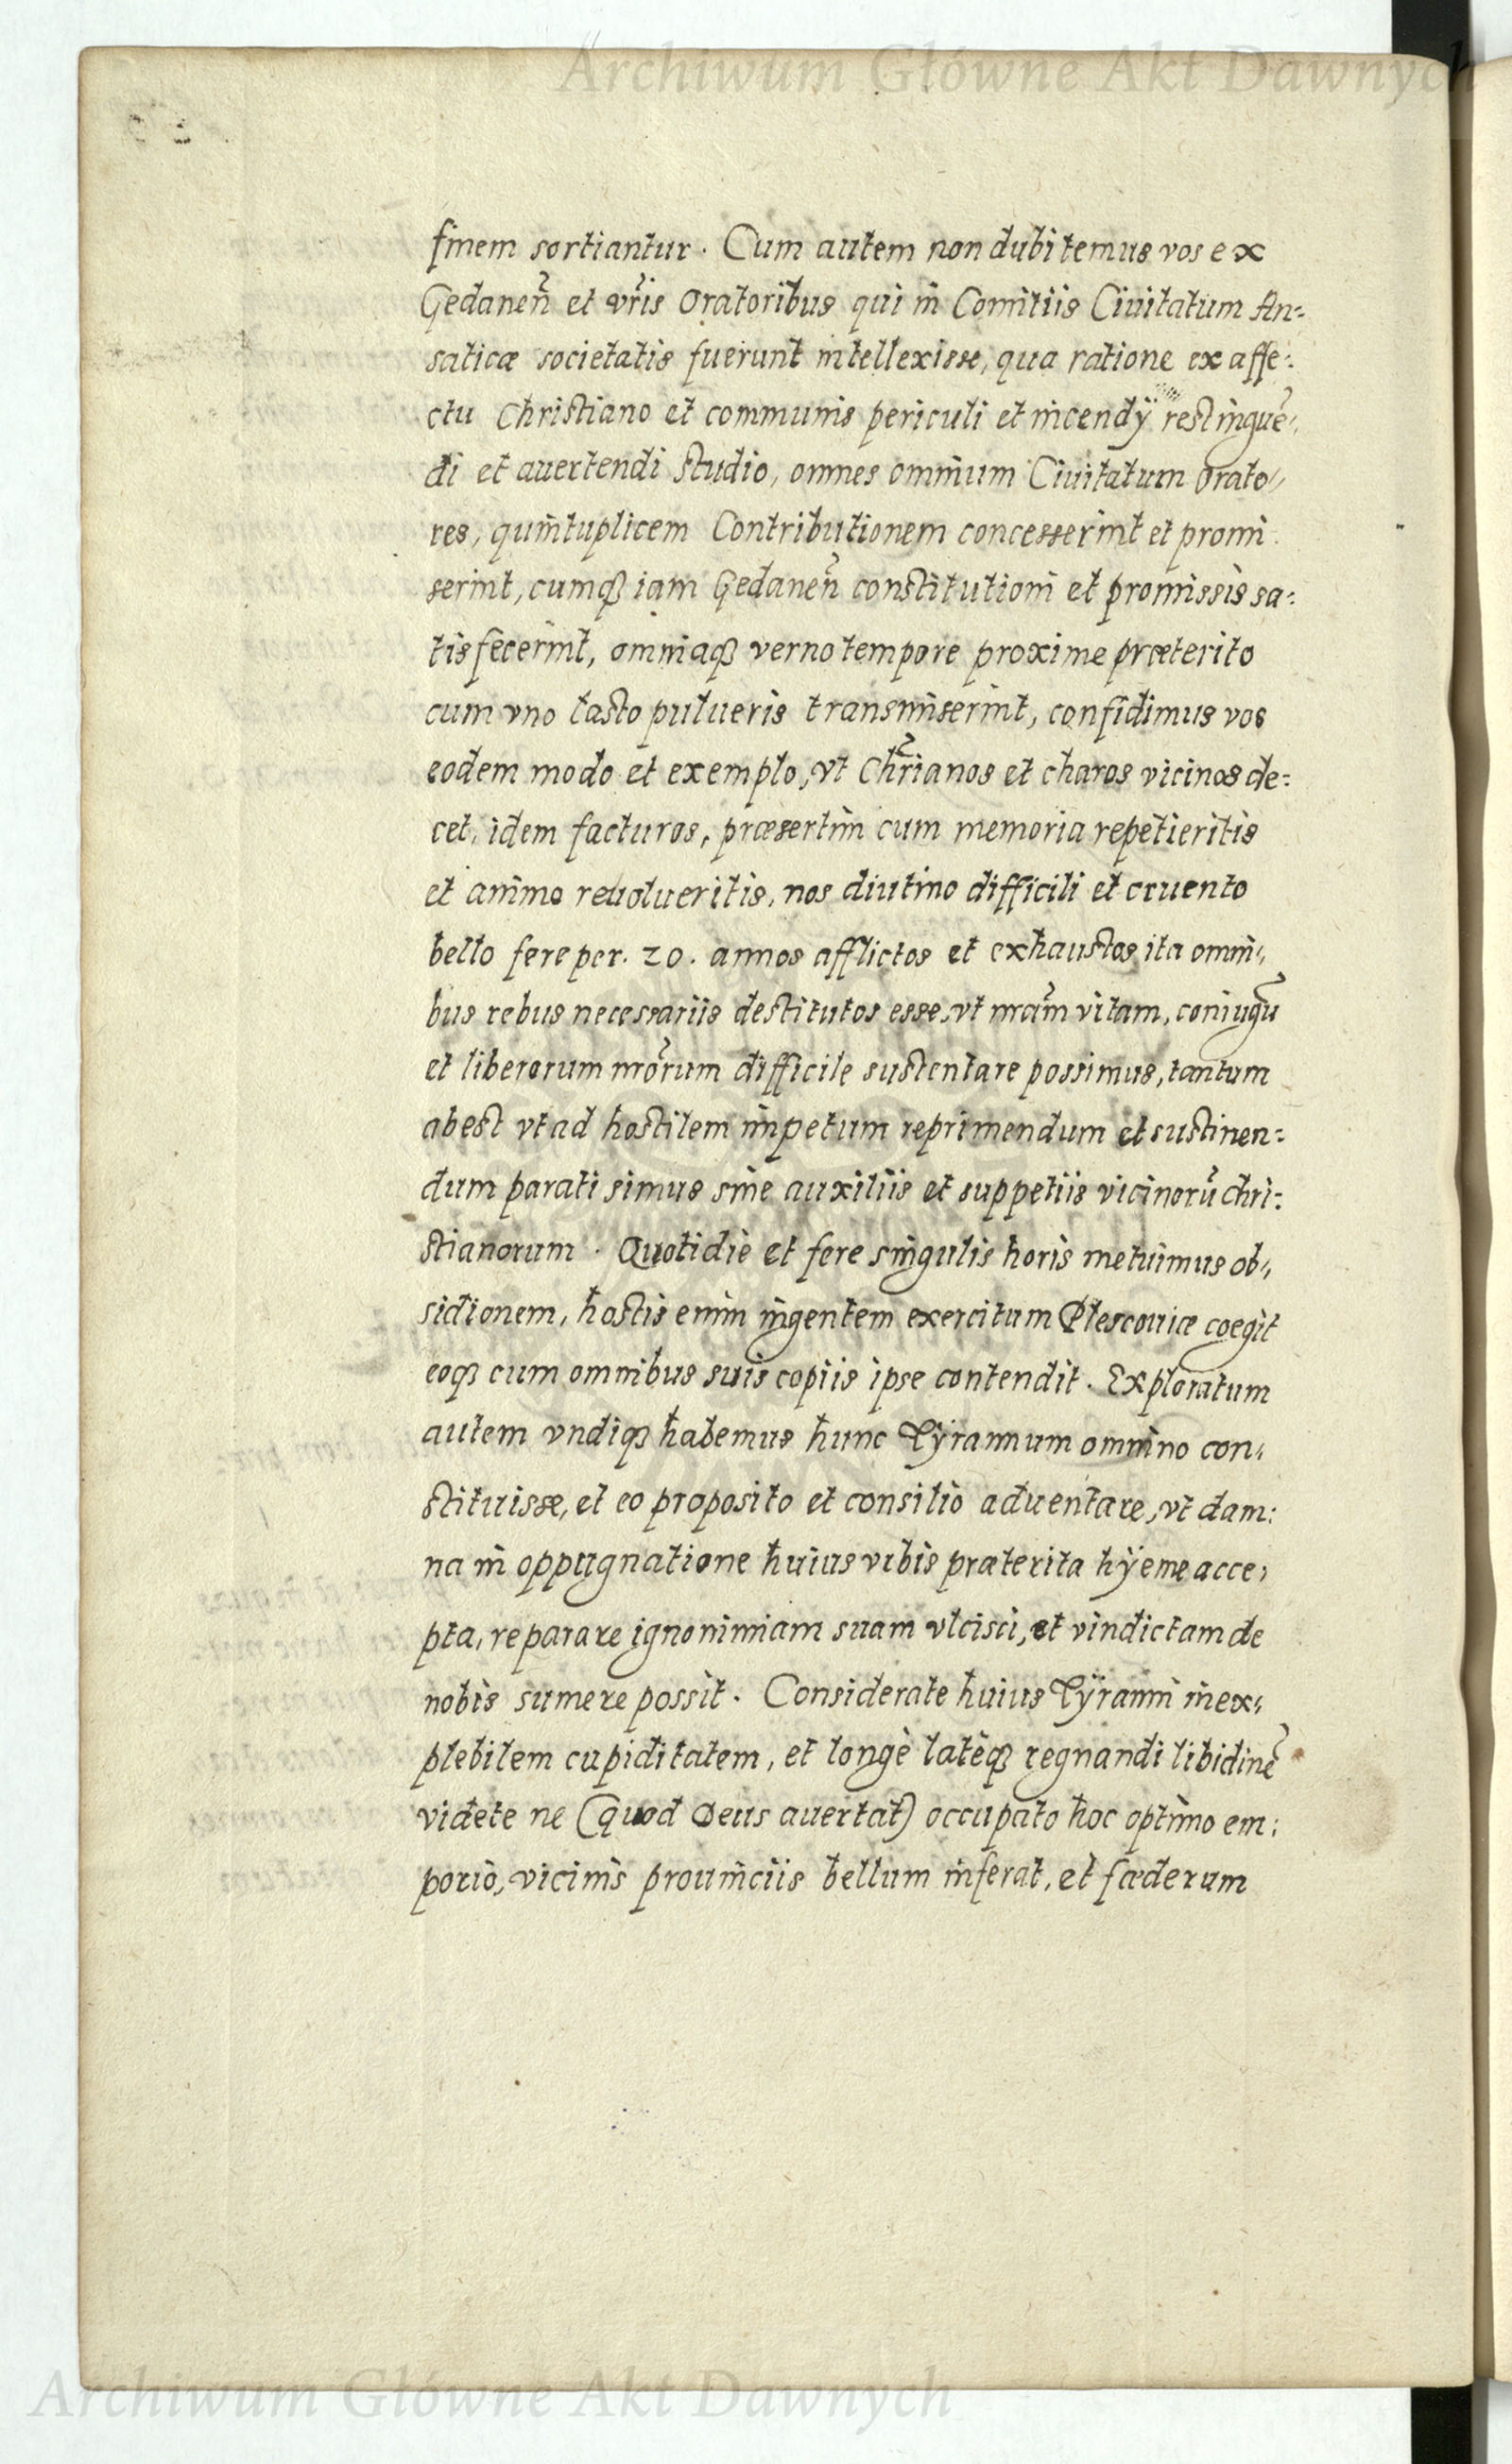 Archiwum Główne Akt Dawnych
finem sortiantur. Cum autem non dubitemus vos ex
Gedaneñ et vr̃is Oratoribus qui in Comitiis Civitatum An=
saticæ societatis fuerunt intellexisse, qua ratione ex affe=
ctu Christiano et communis periculi et incendÿ restinguẽ=
di et auertendi studio, omnes omnium Ciuitatum Orato=
res, quintuplicem Contributionem concesserint et promi
serint, cumq́ȝ iam Gedaneñ constitutioni et promissis sa=
tisfecerint, omniaqȝ verno tempore proxime præterito
cum vno lasto pulueris transmiserint, confidimus vos
eodem modo et exemplo, vt Chr̃ianos et charos vicinos de=
cet, idem facturos, præsertim cum memoria repetieritis
et animo reuolueritis, nos diutino difficili et cruento
bello fere per. 20. annos afflictos et exhaustos ita omni=
bus rebus necessariis destitutos esse, vt nrãm vitam, coniugũ
et liberorum nrõrum difficile sustentare possimus, tantum
abest vt ad hostilem impetum reprimendum et sustinen=
dum parati simus sine auxiliis et suppetiis vicinorũ chri=
stianorum. Quotidie et fere singulis horis metuimus ob=
sidionem, hostis enim ingentem exercitum Plescouiæ coegit
eoqȝ cum omnibus suis copiis ipse contendit. Exploratum
autem vndiqȝ habemus hunc Tÿrannum omnino con=
stituisse, et eo proposito et consilio aduentare, vt dam=
na in oppugnatione huius vrbis præterita hÿeme acce=
pta, reparare ignominiam suam vlcisci, et vindictam de
nobis sumere possit. Considerate huius Tÿranni inex=
plebilem cupiditatem, et longè latèqȝ regnandi libidinẽ
videte ne (quod Deus auertat) occupato hoc optimo em=
porio, vicinis prouinciis bellum inferat, et fœderum
Archiwum Główne Akt Dawnych